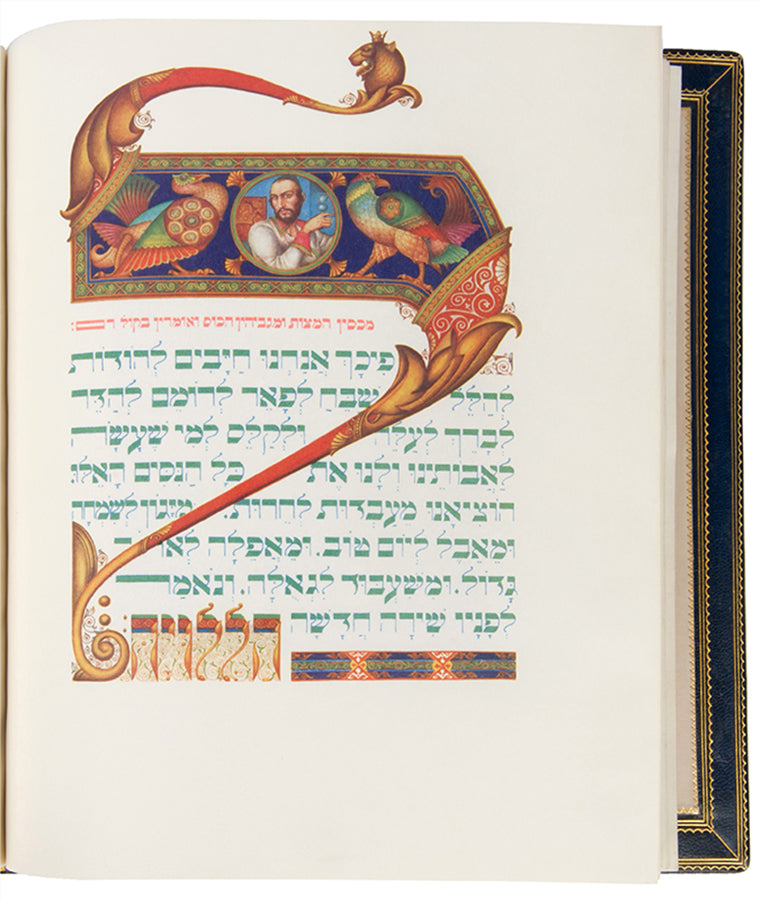 מכסין המצות ומגביהין הכוס ואומרין בקול רם:
לְפִיכָךְ אֲנַחְנוּ חַיָּבִים לְהוֹדוֹת
לְהַלֵּל לְשַׁבֵּחַ לְפָאֵר לְרוֹמֵם לְהַדֵּר
לְבָרֵךְ לְעַלֵּה וּלְקַלֵּס לְמִי שֶׁעָשָׂה
לַאֲבוֹתֵינוּ וְלָנוּ אֶת כָּל הַנִּסִּים הָאֵלּוּ
הוֹצִיאָנוּ מֵעַבְדוּת לְחֵרוּת. מִיָּגוֹן לְשִׂמְחָה
וּמֵאֵבֶל לְיוֹם טוֹב. וּמֵאֲפֵלָה לְאוֹר
גָּדוֹל. וּמִשִּׁעְבּוּד לִגְאֻלָּה. וְנֹאמַר
לְפָנָיו שִׁירָה חֲדָשָׁה
הללויה